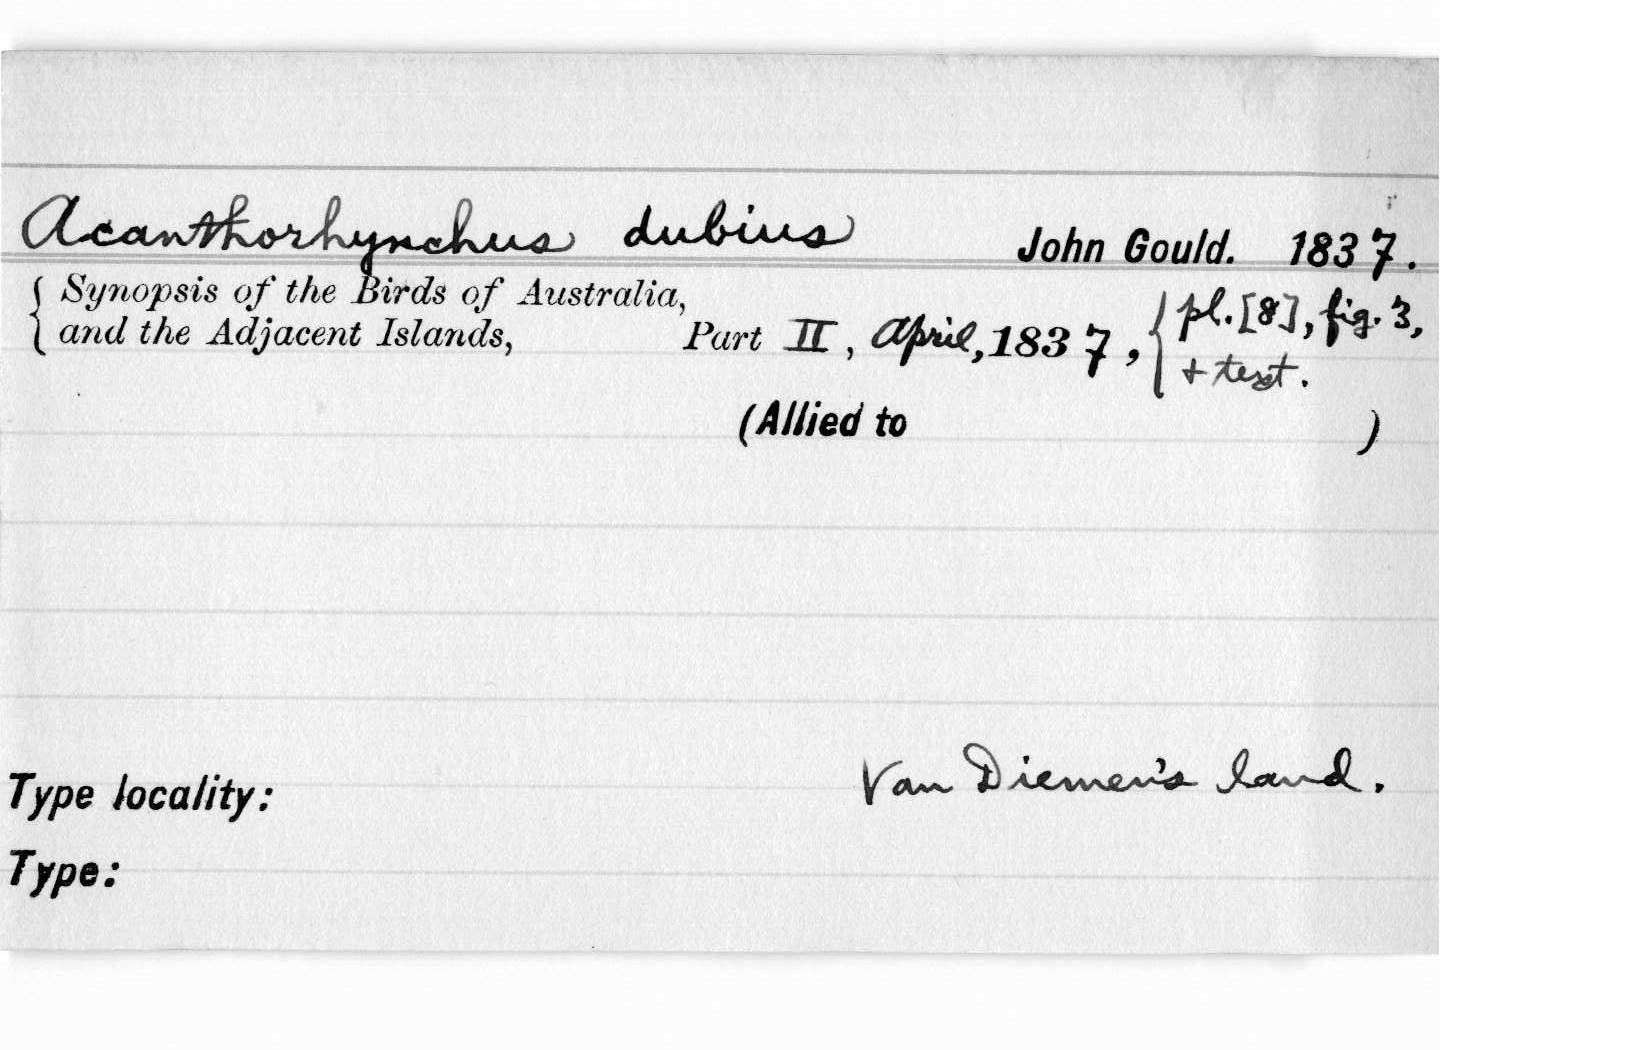 Acanthorhynchus dubius John Gould. 1837.
{ Synopsis of the Birds of Australia,
and the Adjacent Islands, Part II, April, 1837, { pl. [8], fig. 3,
+ text.
(Allied to )
Type locality: Van Diemen's land.
Type: